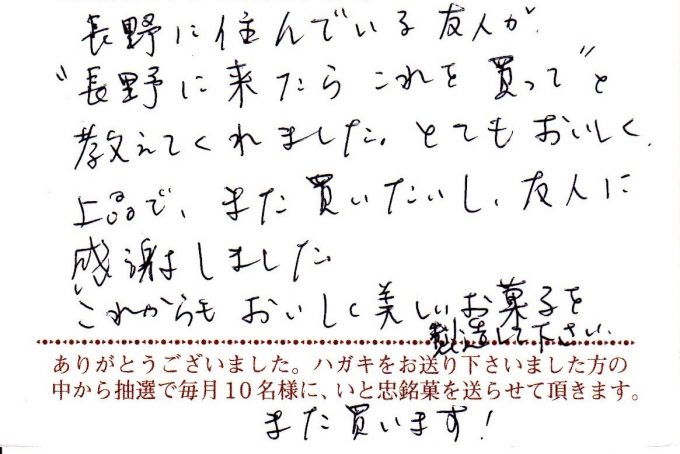 長野に住んでいる友人が、
"長野に来たら これを 買って"と
教えてくれました。とてもおいしく、
上品で、また買いたいし、友人に
感謝しました。
これからも おいしく美しいお菓子を
製造して下さい。
ありがとうございました。ハガキをお送り下さいました方の
中から抽選で毎月10名様に、いと忠銘菓を送らせて頂きます。
また買います！